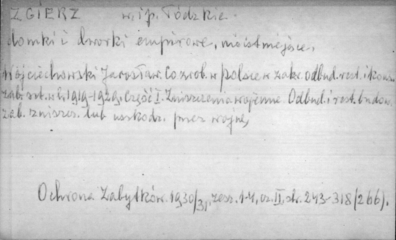 ZGIERZ w. i p. Łódzkie.
domki i dworki empirowe, nieistniejące,
Wojciechowski Jarosław. Co zrob. w Polsce w zakr. odbud. rest. i konser.
zab. szt. w l. 1919-1929. Część I. Zniszczenia wojenne. Odbud. i rest. budow.
zab. zniszcz. lub uszkodz. przez wojnę,
Ochrona Zabytków. 1930/31, zesz. 1-4, cz. II, str. 243-318/266).